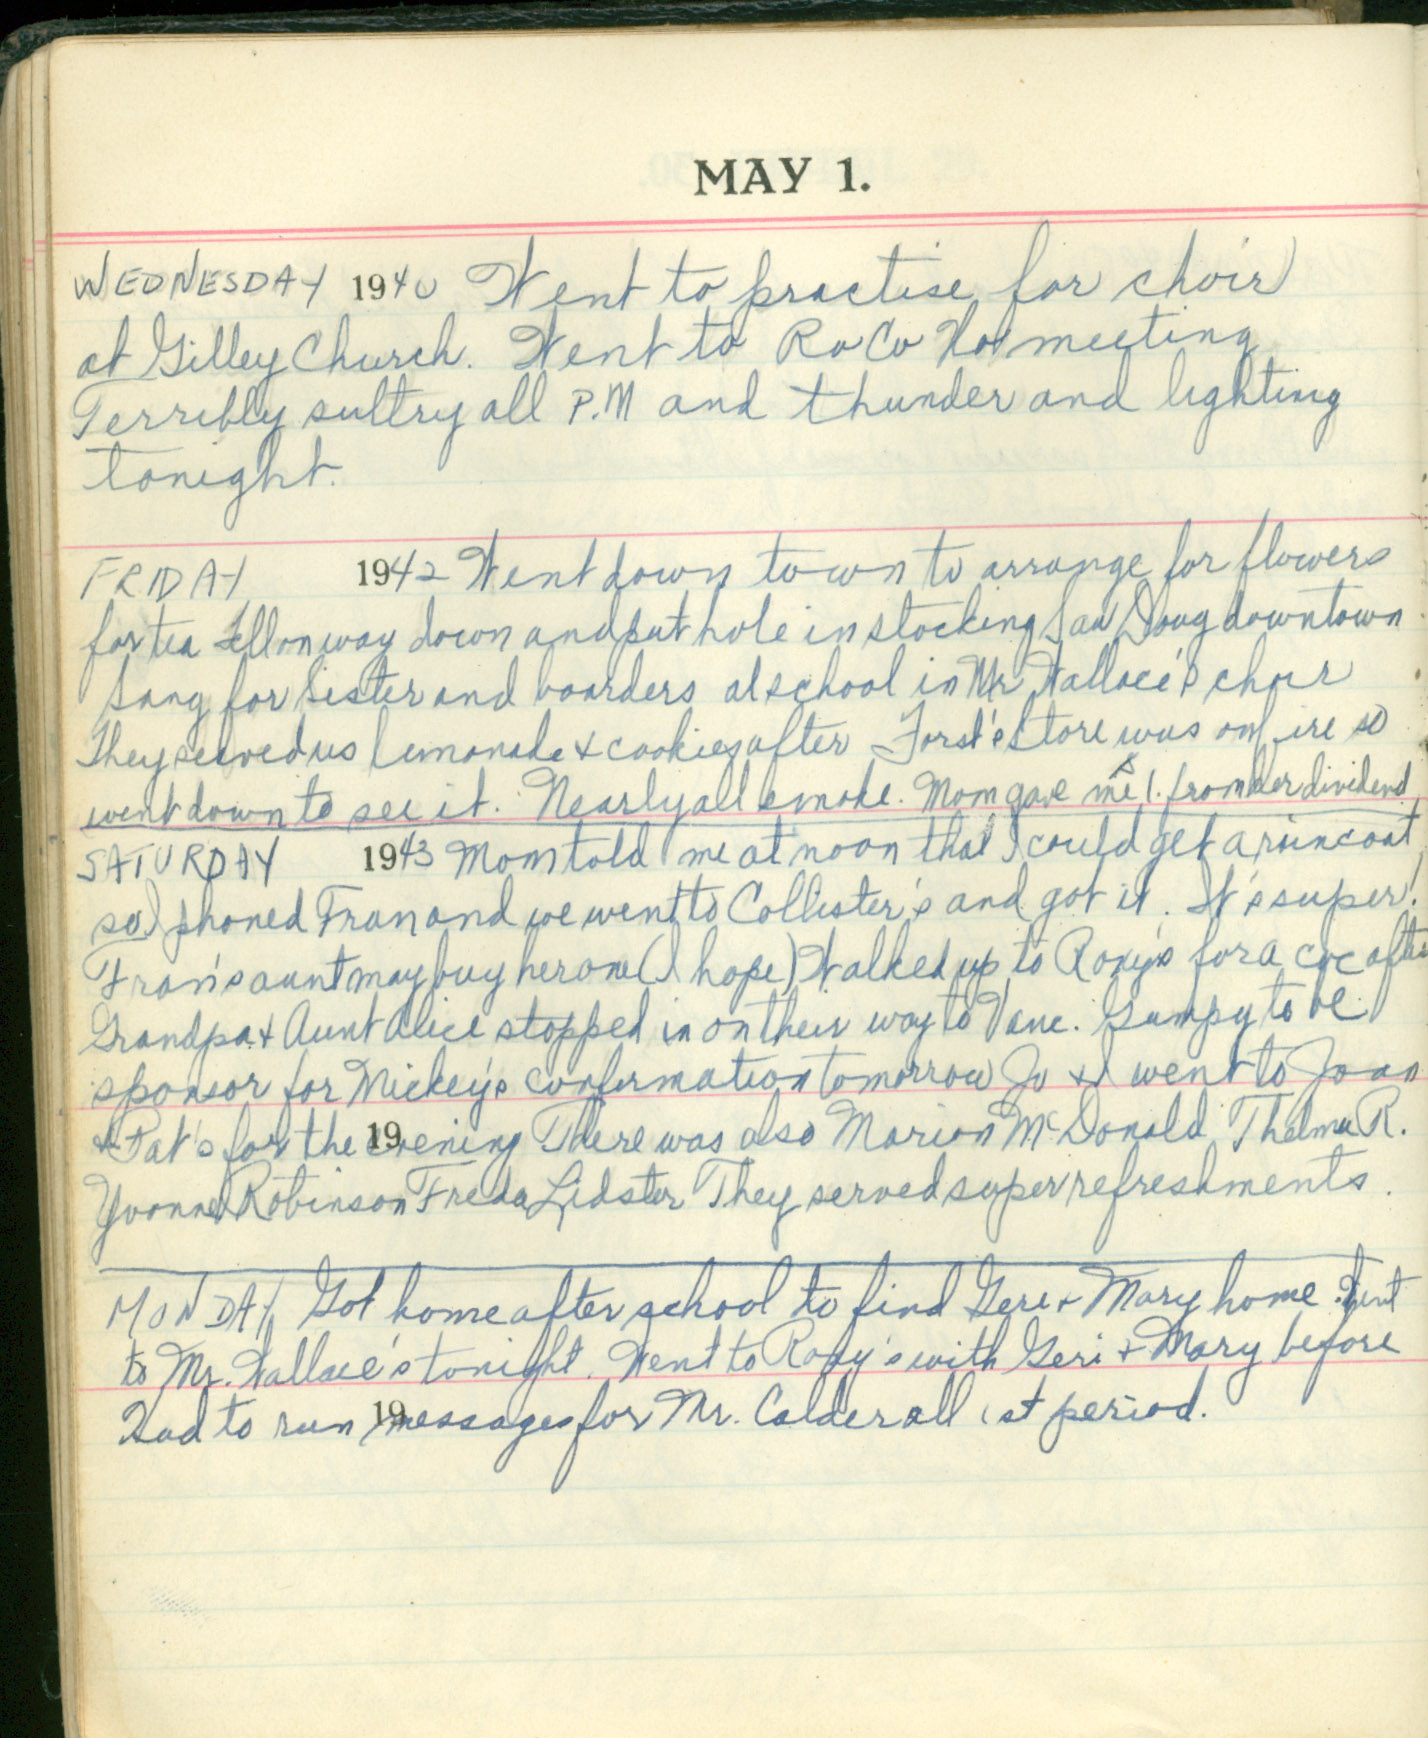 MAY 1.
WEDNESDAY 1940 Went to practise for choir
at Gilley Church. Went to Ro Co Ho meeting
Terribly sultry all P.M and thunder and lighting
tonight.
FRIDAY 1942 Went down town to arrange for flowers
for tea Fell on way down and put hole in stocking Saw Doug downtown
Sang for Sister and boarders at school in Mr Wallace's choir
They served us lemonade & cookies after Forst's Store was on fire so
went down to see it. Nearly all smoke. Mom gave me 1. from her dividend
SATURDAY 1943 Mom told me at noon that I could get a raincoat
so I phoned Fran and we went to Collister's and got it. It's super!
Fran's aunt may buy her one (I hope) Walked up to Roxy's for a coc after
Grandpa & Aunt Alice stopped in on their way to Vanc. Gumpy to be
sponsor for Mickey's confirmation tomorrow Jo & I went to Joan
& Pat's for the 19 evening There was also Marion McDonald Thelma R.
Yvonne Robinson Freda Lidster They served super refreshments.
MONDAY Got home after school to find Geri & Mary home. Went
to Mr. Wallace's tonight. Went to Roxy's with Geri & Mary before
Had to run 19 messages for Mr. Calder all 1st period.